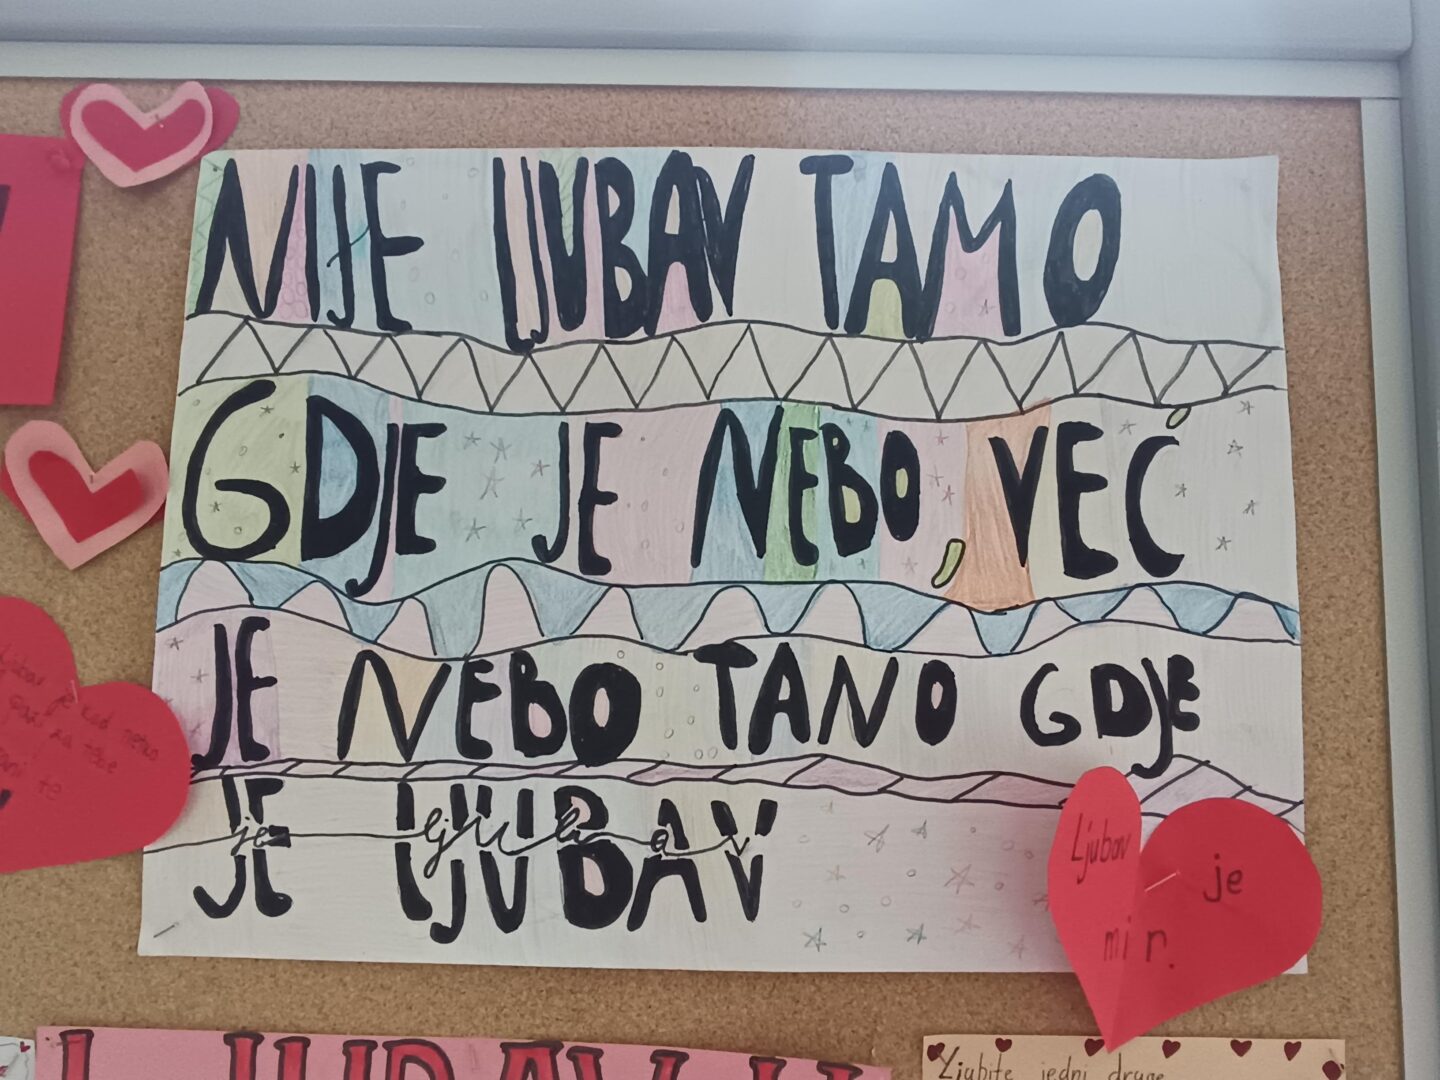 NIJE LJUBAV TAMO
GDJE JE NEBO, VEĆ
JE NEBO TANO GDJE
JE LJUBAV
je ljubav
Ljubav je
mi r.
Ljubav je kad netko
za tebe
te
LJUBAV
Ljubite jedni druge